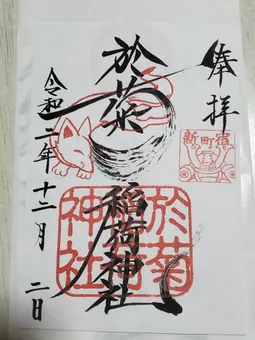 奉拝
新町宿
於菊
稲荷神社
於菊
稲荷
神社
令和二年十二月二日